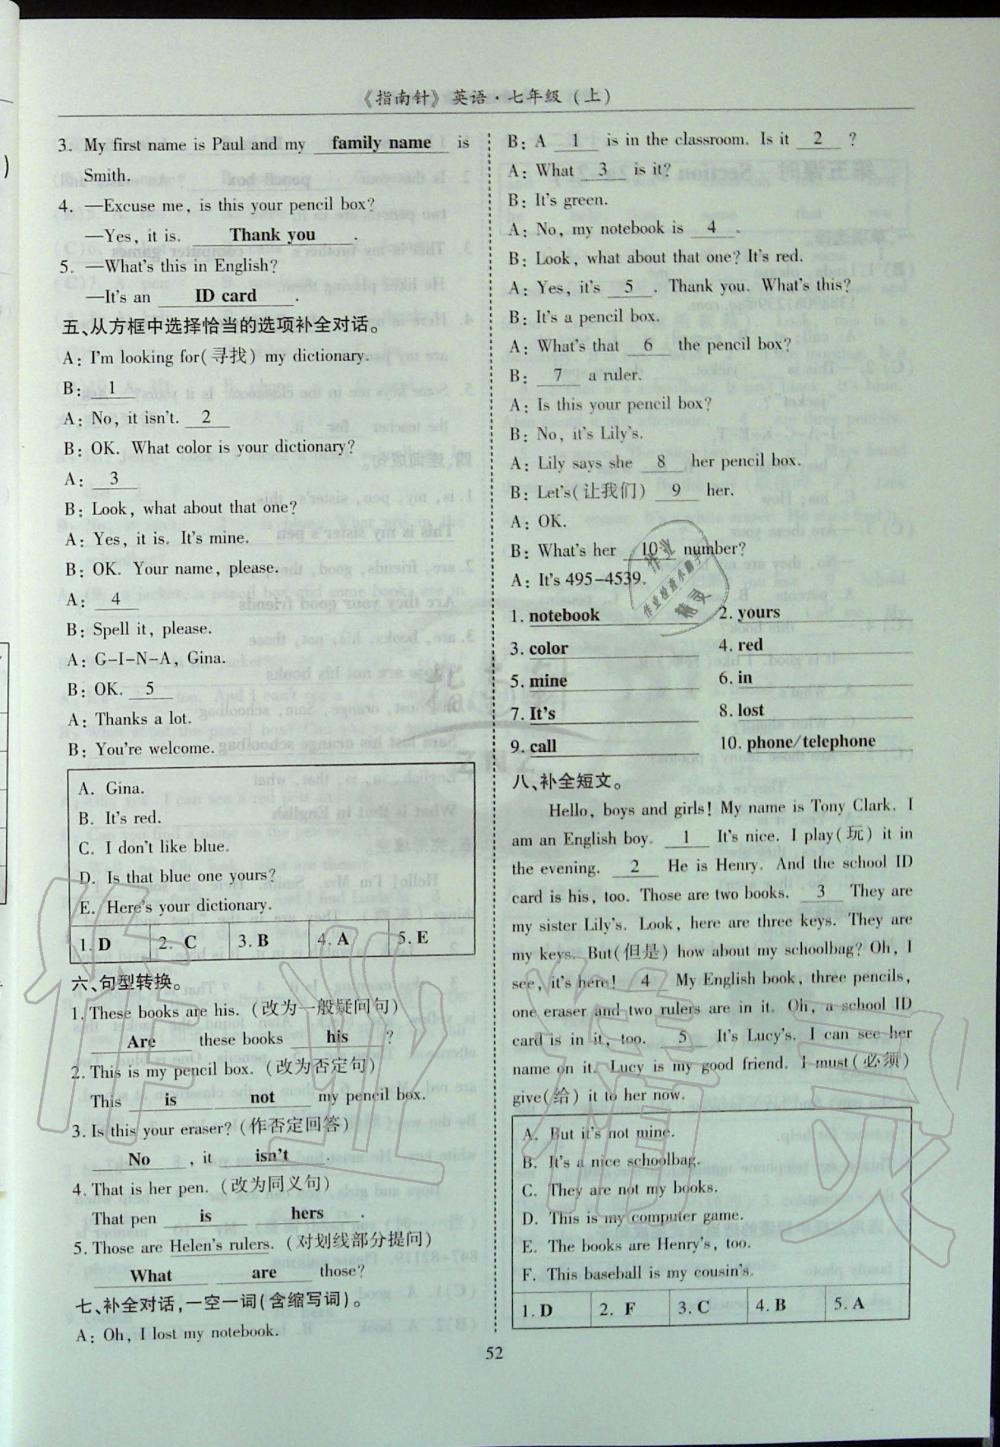 《指南针》英语·七年级(上)
3. My first name is Paul and my family name is
Smith.
4. —Excuse me, is this your pencil box?
—Yes, it is. Thank you.
5. —What's this in English?
—It's an ID card.
五、从方框中选择恰当的选项补全对话。
A: I'm looking for(寻找) my dictionary.
B: 1
A: No, it isn't. 2
B: OK. What color is your dictionary?
A: 3
B: Look, what about that one?
A: Yes, it is. It's mine.
B: OK. Your name, please.
A: 4
B: Spell it, please.
A: G-I-N-A, Gina.
B: OK. 5
A: Thanks a lot.
B: You're welcome.
A. Gina.
B. It's red.
C. I don't like blue.
D. Is that blue one yours?
E. Here's your dictionary.
1. D 2. C 3. B 4. A 5. E
六、句型转换。
1. These books are his. (改为一般疑问句)
Are these books his ?
2. This is my pencil box. (改为否定句)
This is not my pencil box.
3. Is this your eraser? (作否定回答)
No , it isn't .
4. That is her pen. (改为同义句)
That pen is hers .
5. Those are Helen's rulers. (对划线部分提问)
What are those?
七、补全对话,一空一词(含缩写词)。
A: Oh, I lost my notebook.
B: A 1 is in the classroom. Is it 2 ?
A: What 3 is it?
B: It's green.
A: No, my notebook is 4 .
B: Look, what about that one? It's red.
A: Yes, it's 5 . Thank you. What's this?
B: It's a pencil box.
A: What's that 6 the pencil box?
B: 7 a ruler.
A: Is this your pencil box?
B: No, it's Lily's.
A: Lily says she 8 her pencil box.
B: Let's(让我们) 9 her.
A: OK.
B: What's her 10 number?
A: It's 495-4539.
1. notebook 2. yours
3. color 4. red
5. mine 6. in
7. It's 8. lost
9. call 10. phone/telephone
八、补全短文。
Hello, boys and girls! My name is Tony Clark. I
am an English boy. 1 It's nice. I play(玩) it in
the evening. 2 He is Henry. And the school ID
card is his, too. Those are two books. 3 They are
my sister Lily's. Look, here are three keys. They are
my keys. But(但是) how about my schoolbag? Oh, I
see, it's here! 4 My English book, three pencils,
one eraser and two rulers are in it. Oh, a school ID
card is in it, too. 5 It's Lucy's. I can see her
name on it. Lucy is my good friend. I must(必须)
give(给) it to her now.
A. But it's not mine.
B. It's a nice schoolbag.
C. They are not my books.
D. This is my computer game.
E. The books are Henry's, too.
F. This baseball is my cousin's.
1. D 2. F 3. C 4. B 5. A
52